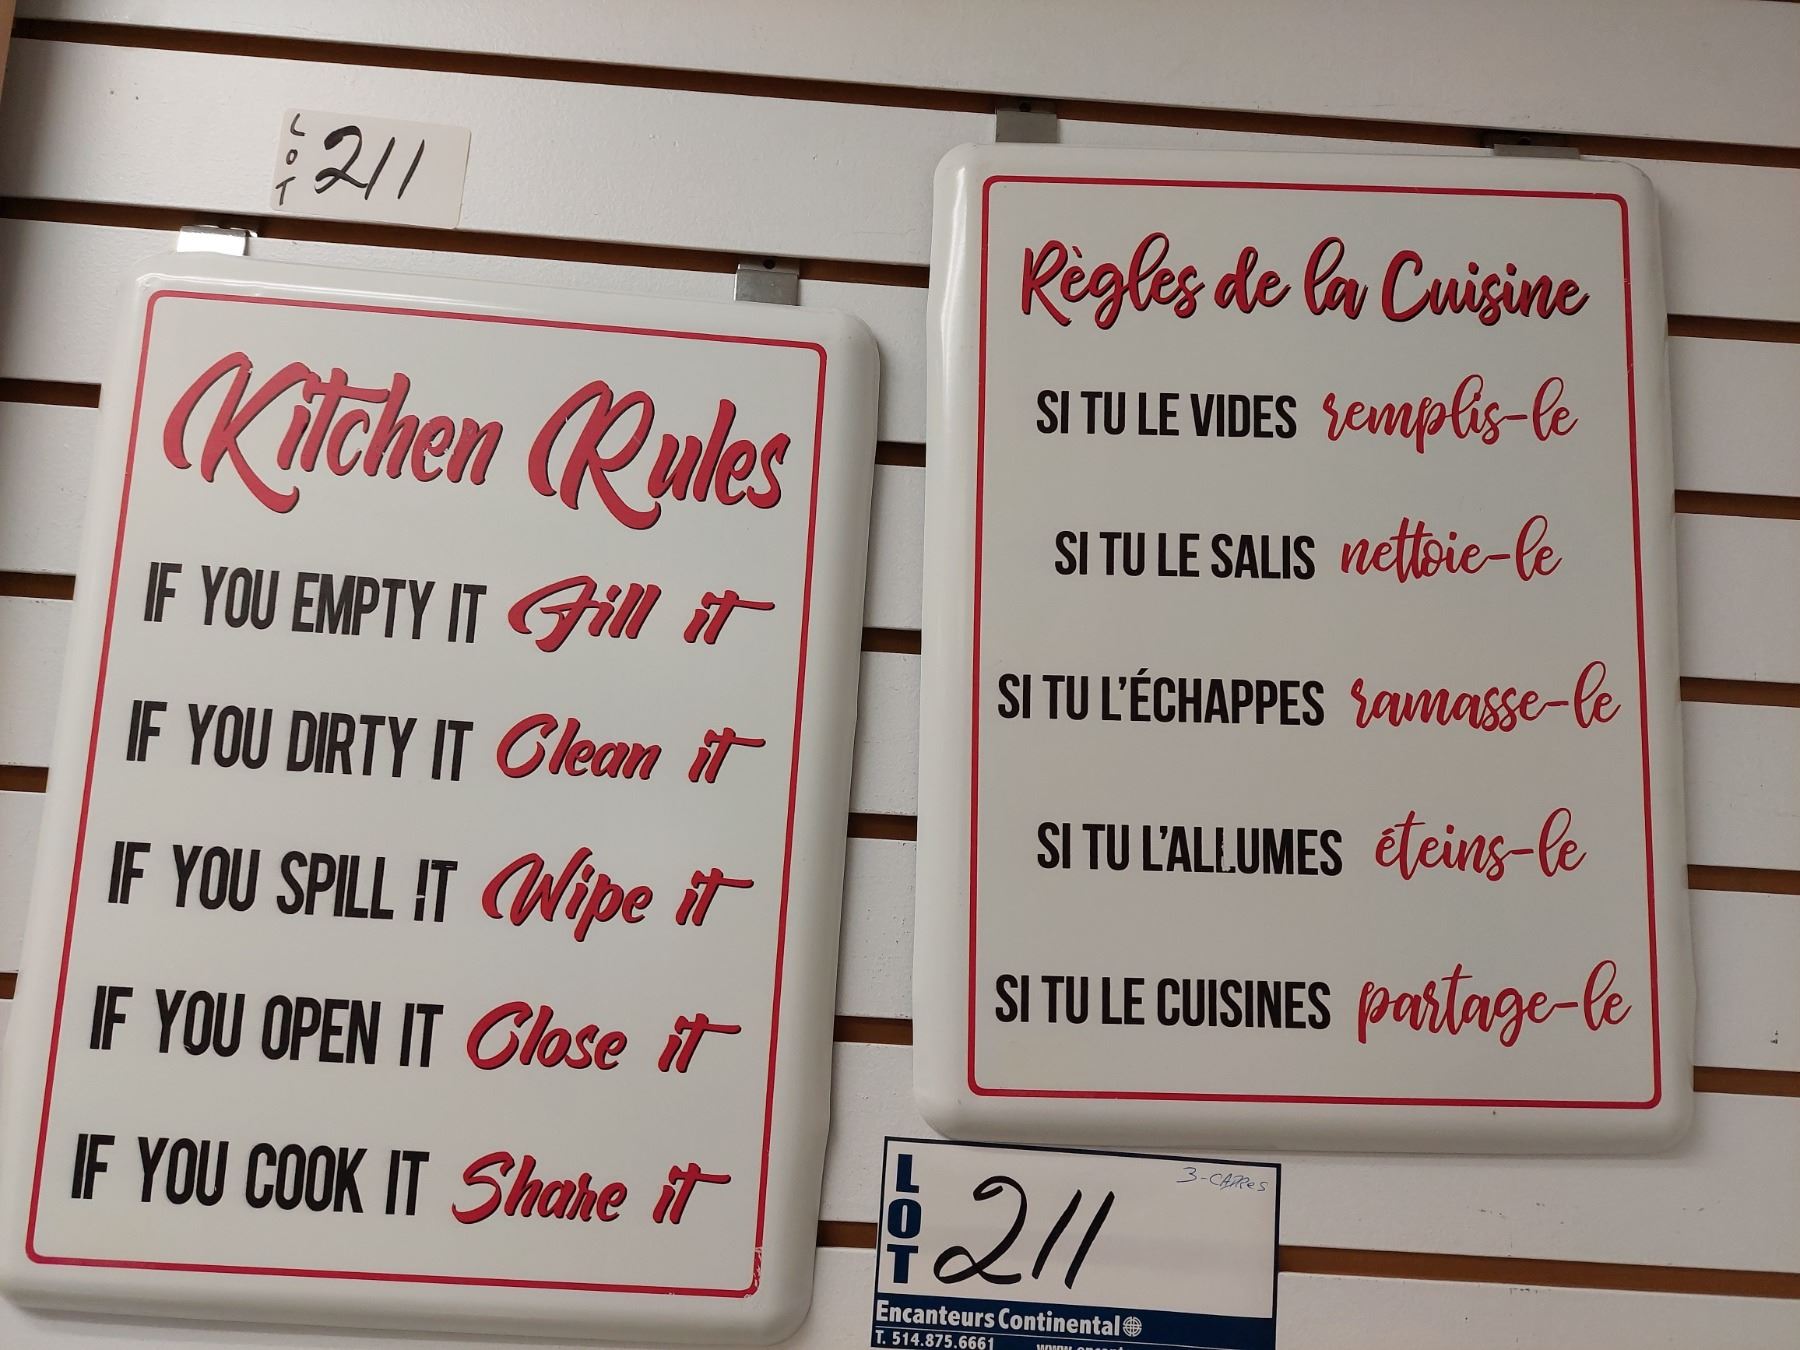 LOT 211
Kitchen Rules
IF YOU EMPTY IT Fill it
IF YOU DIRTY IT Clean it
IF YOU SPILL IT Wipe it
IF YOU OPEN IT Close it
IF YOU COOK IT Share it
Règles de la Cuisine
SI TU LE VIDES remplis-le
SI TU LE SALIS nettoie-le
SI TU L'ÉCHAPPES ramasse-le
SI TU L'ALLUMES éteins-le
SI TU LE CUISINES partage-le
3-CADRES
LOT 211
Encanteurs Continental
T. 514.875.6661